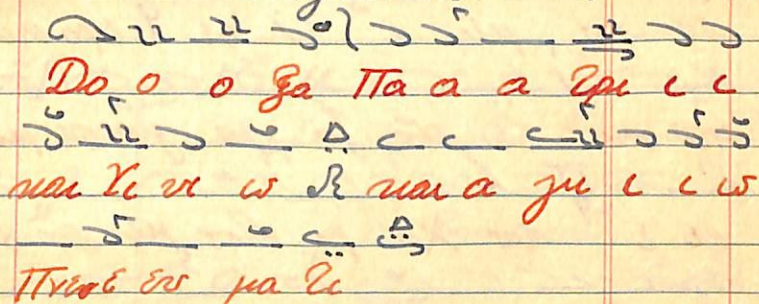 Δο ο ο ξα Πα α α τρι ι ι
και Υι ι ω και α γι ι ι ω
Πνευ ευ μα τι